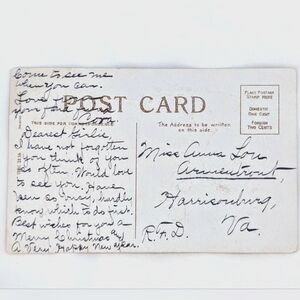 Come to see me
when you can.
Love
your
POST CARD
THIS SIDE FOR
The Address to be written
on this side.
PLACE POSTAGE
STAMP HERE
DOMESTIC
ONE CENT
FOREIGN
TWO CENTS
Dearest Girlie,
I have not forgotten
you think of you
so often. Would love
to see you. Have
been so busy, hardly
know which to do first.
Best wishes for you a
Merry Christmas and
A Very Happy New year.
Miss Anna Lou
Armentrout,
Harrisonburg,
R.F.D. Va.